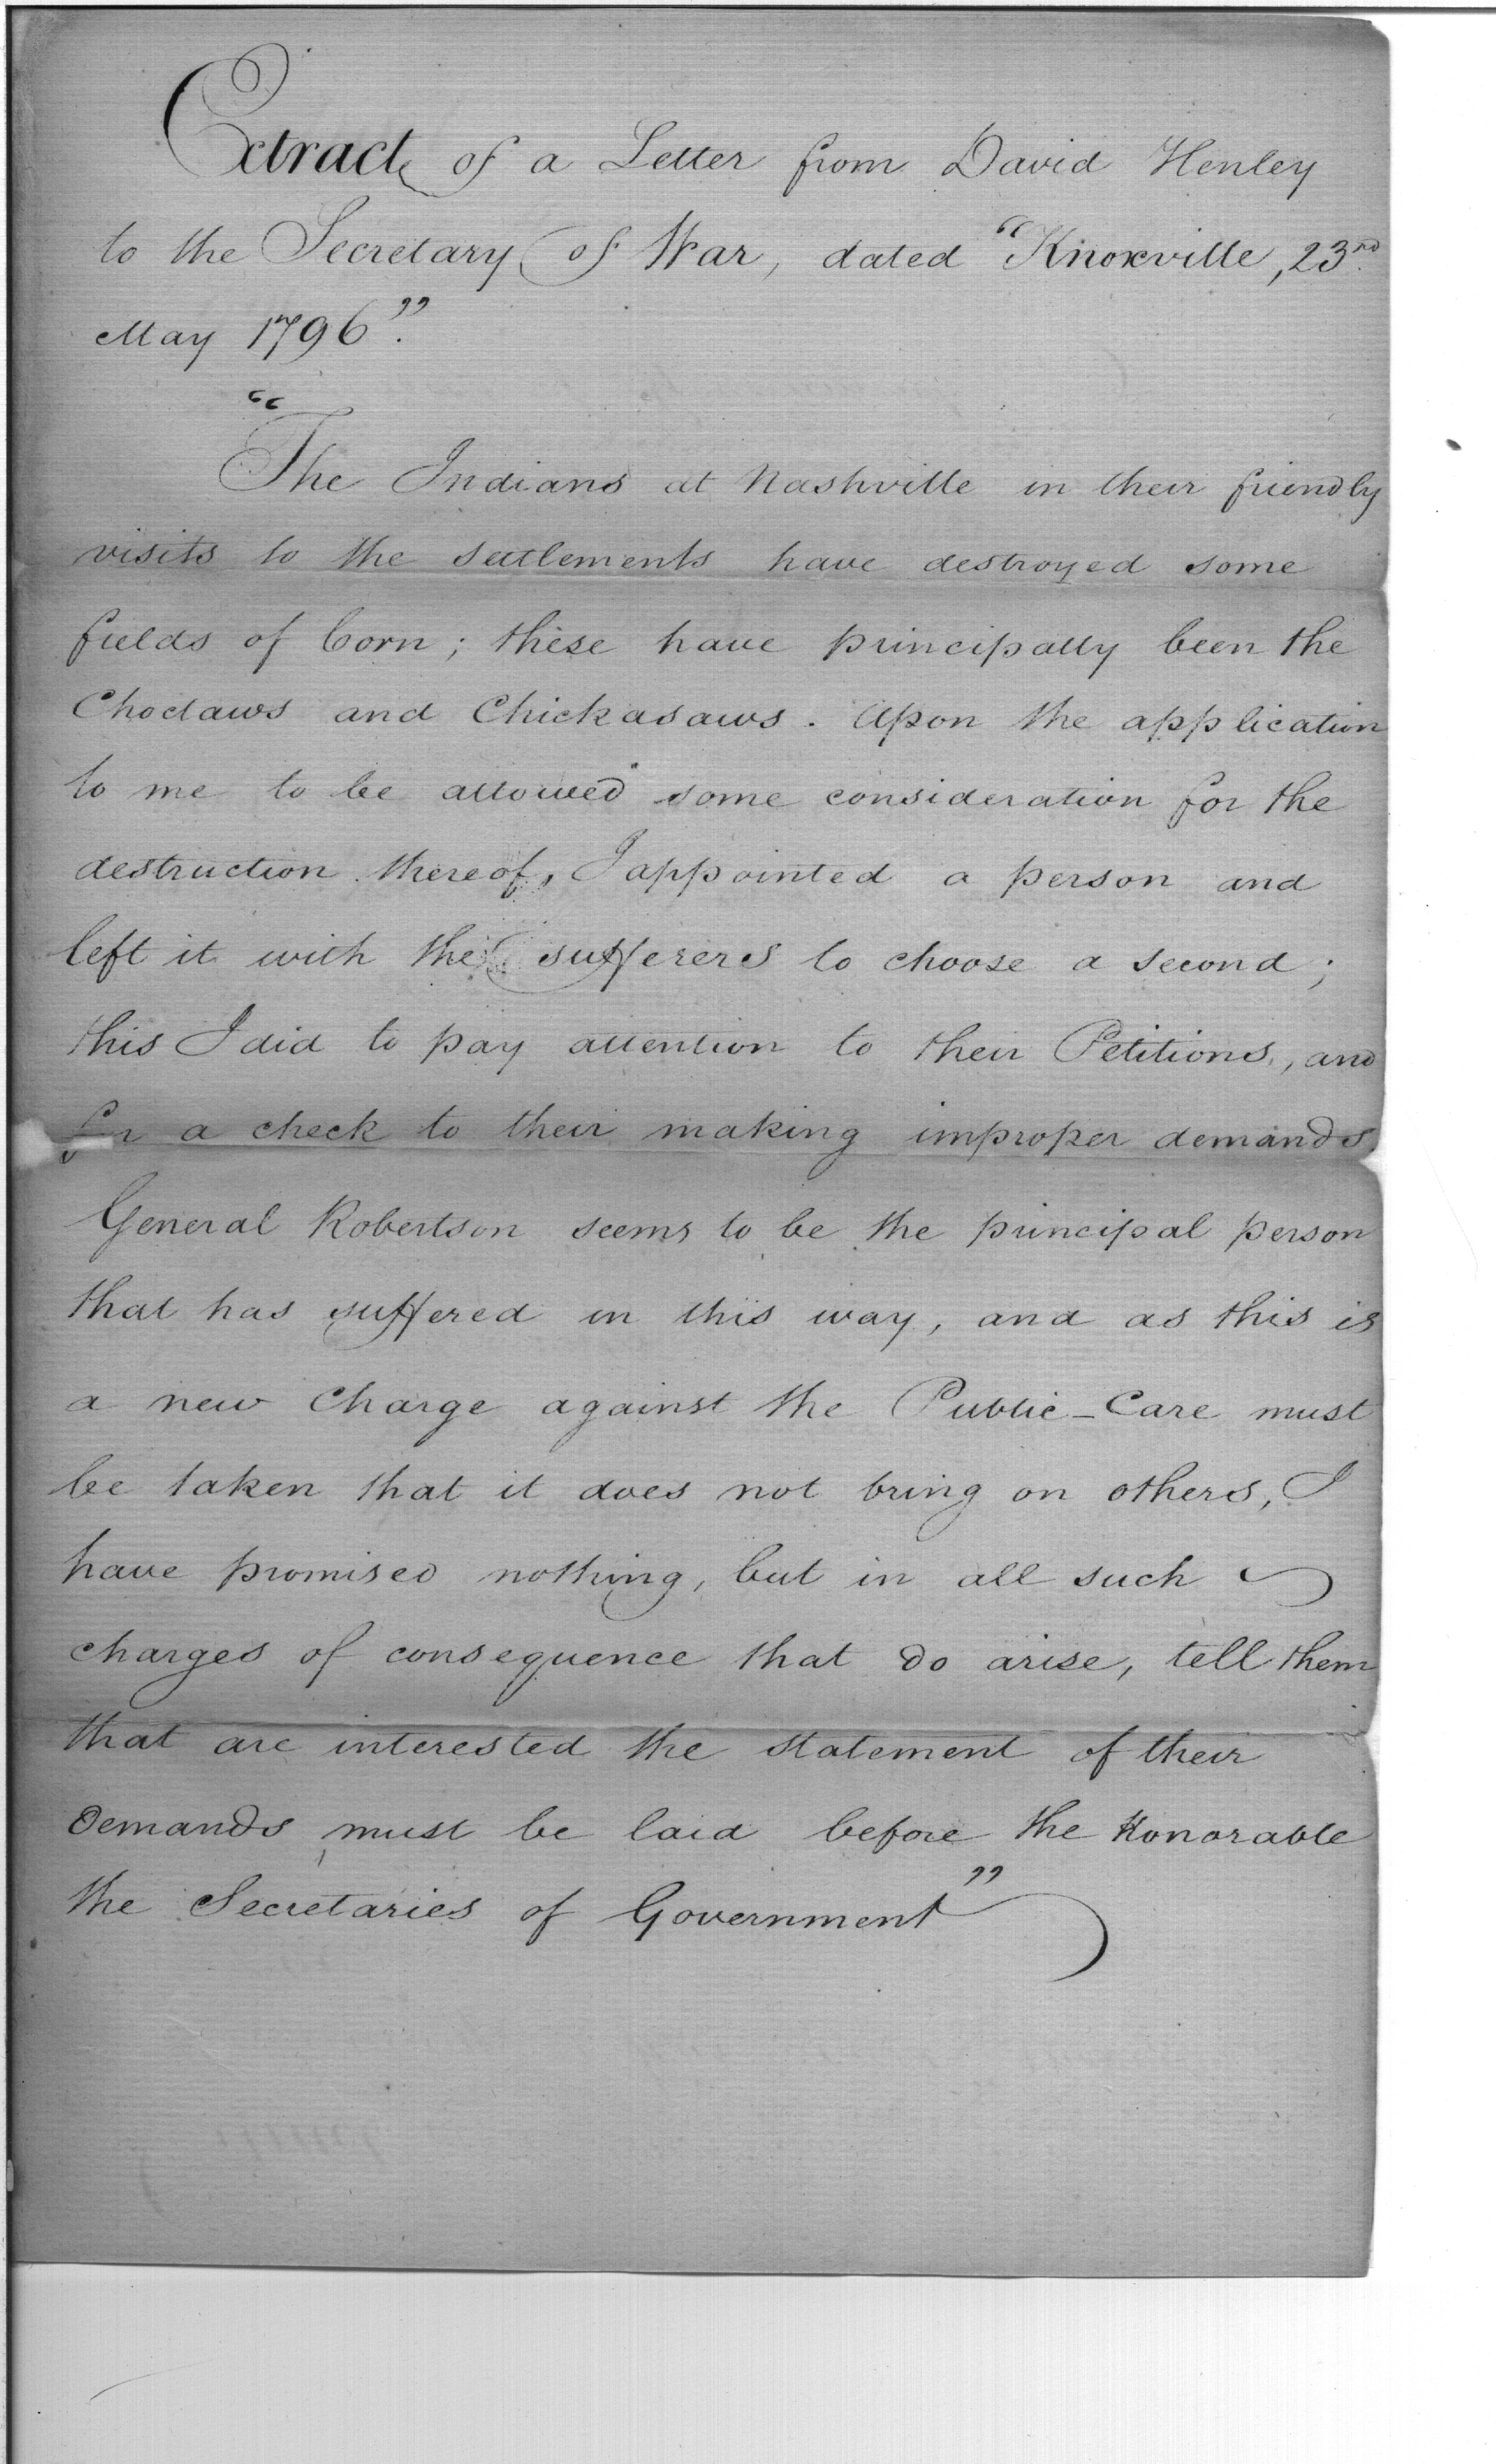 Extract of a Letter from David Henley
to the Secretary of War, dated "Knoxville, 23rd.
May 1796".
"The Indians at Nashville in their friendly
visits to the settlements have destroyed some
fields of Corn; these have principally been the
Choctaws and Chickasaws. Upon the application
to me to be allowed some consideration for the
destruction thereof, I appointed a person and
left it with the sufferers to choose a second;
this I did to pay attention to their Petitions, and
for a check to their making improper demands.
General Robertson seems to be the principal person
that has suffered in this way, and as this is
a new Charge against the Public - Care must
be taken that it does not bring on others, I
have promised nothing, but in all such
charges of consequence that do arise, tell them
that are interested the statement of their
Demands must be laid before the Honorable
the Secretaries of Government"